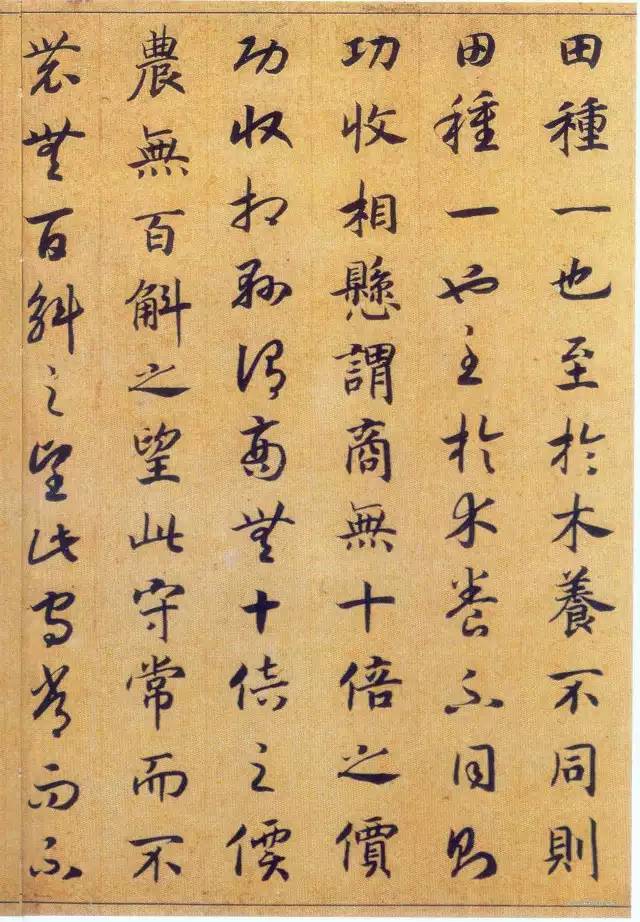 田種一也至於木養不同則
田種一也至於水養不同則
功收相懸謂商無十倍之價
功收相懸謂商無十倍之價
農無百斛之望此守常而不
農無百斛之望此守常而不